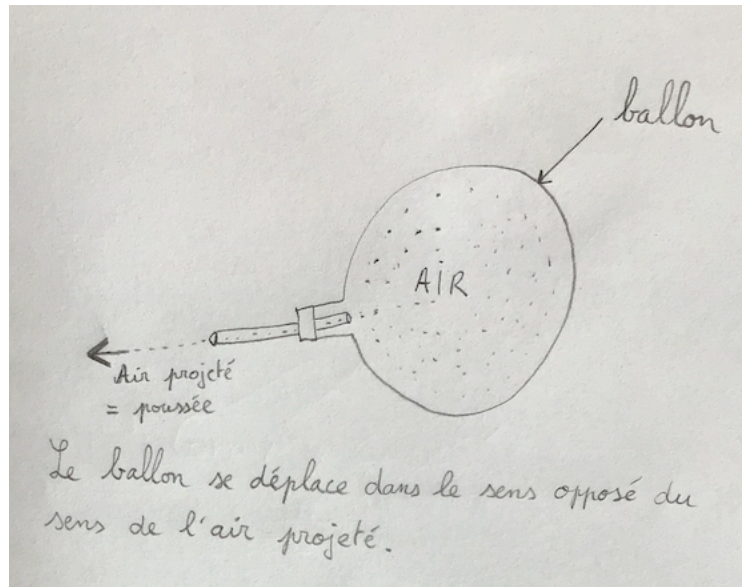 ballon
AIR
Air projeté
= poussée
Le ballon se déplace dans le sens opposé du
sens de l'air projeté.